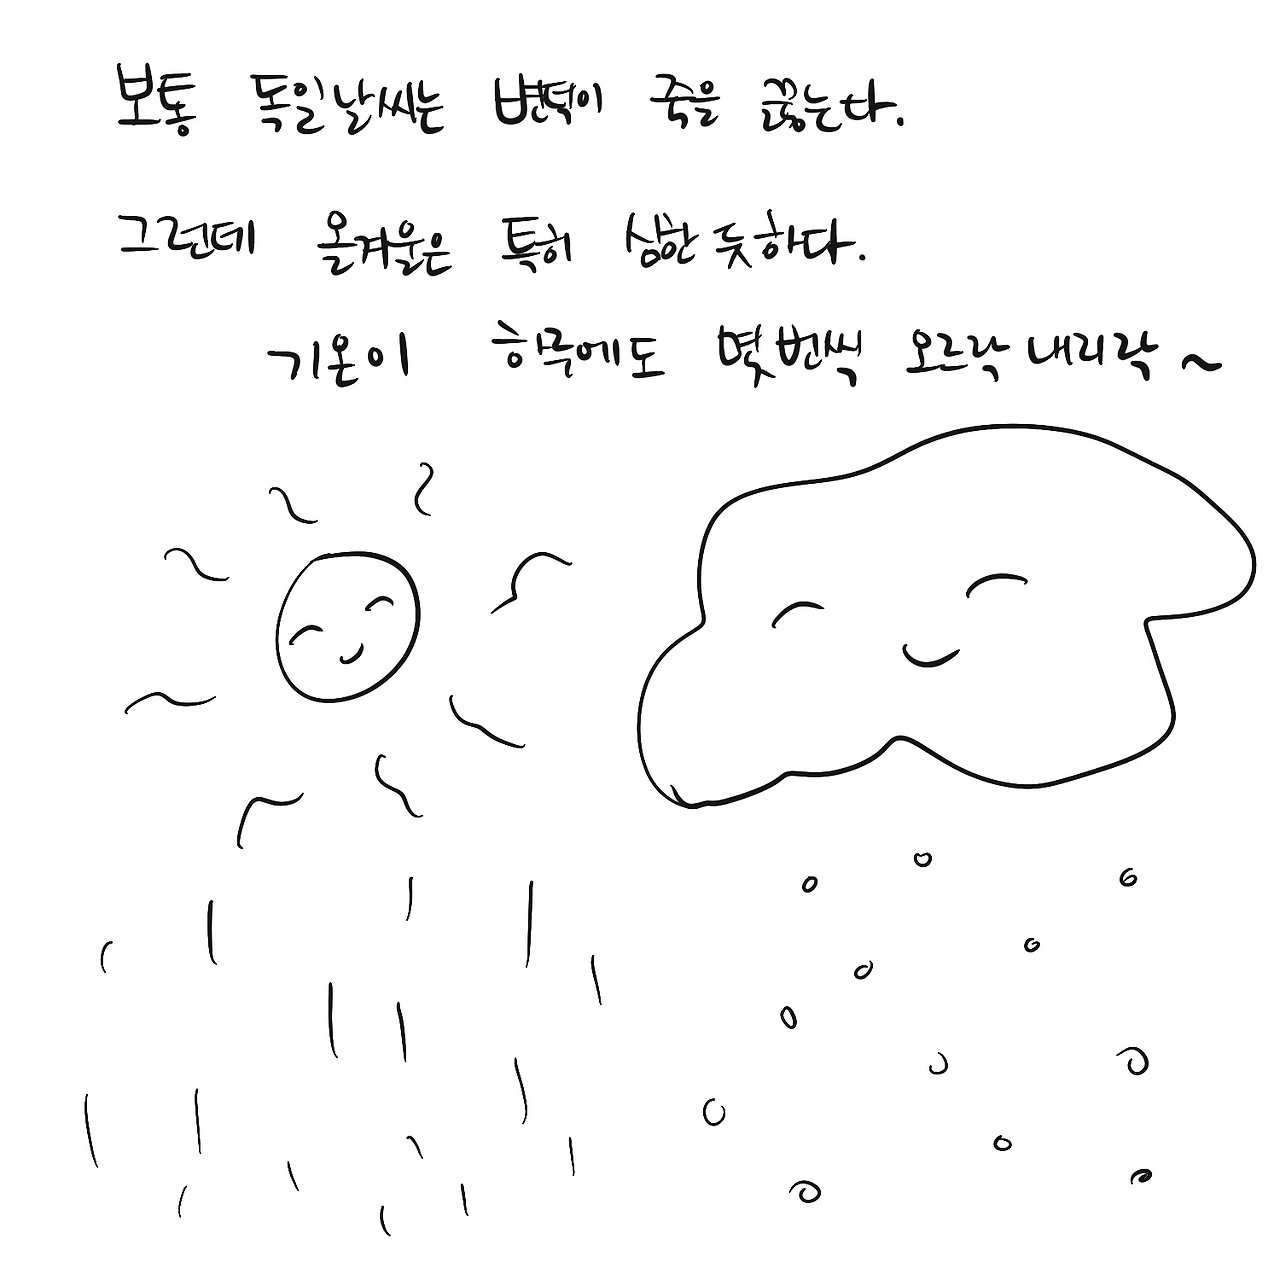 보통 독일날씨는 변덕이 죽을 끓는다.
그런데 올겨울은 특히 심한 듯하다.
기온이 하루에도 몇 번씩 오르락 내리락 ~